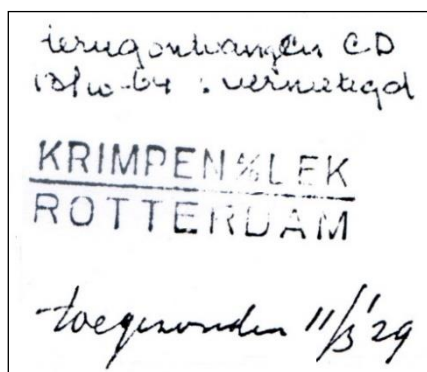 terugontvangen CD
13/10-64 : vernietigd
KRIMPEN a/d LEK
ROTTERDAM
toegezonden 11/3 '29